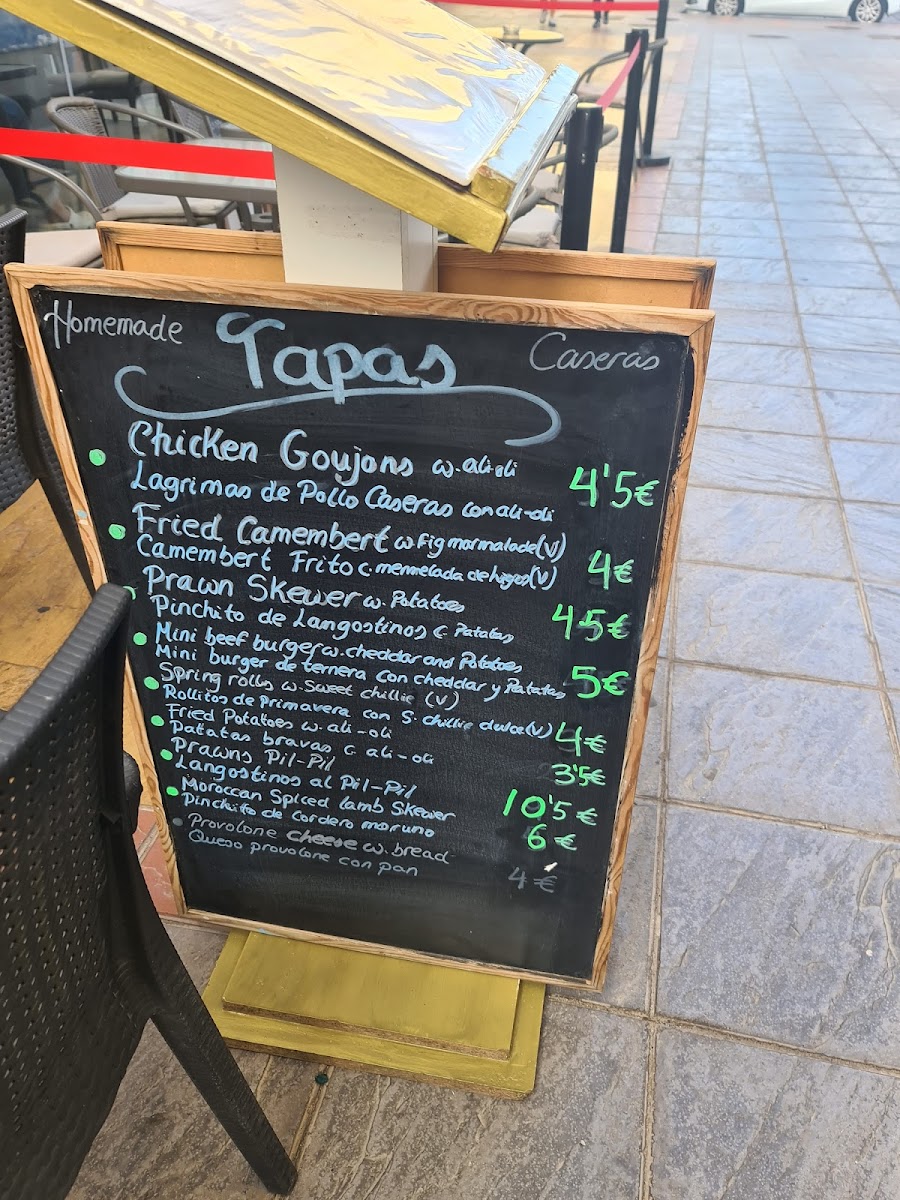 Homemade Tapas Caseras
Chicken Goujons w. ali-oli
Lagrimas de Pollo Caseras con ali-oli 4'5€
Fried Camembert w Fig marmalade (V)
Camembert Frito c. mermelada de higos (V) 4€
Prawn Skewer w. Potatoes
Pinchito de Langostinos c Patatas 4'5€
Mini beef burger w. cheddar and Potatoes
Mini burger de ternera con cheddar y Patatas 5€
Spring rolls w. Sweet chillie (V)
Rollitos de Primavera con S. chillie dulce (V) 4€
Fried Potatoes w. ali-oli
Patatas bravas c ali-oli 3'5€
Prawns Pil-Pil
Langostinos al Pil-Pil 10'5€
Moroccan Spiced lamb Skewer
Pinchito de cordero moruno 6€
Provolone cheese w. bread
Queso provolone con pan 4€